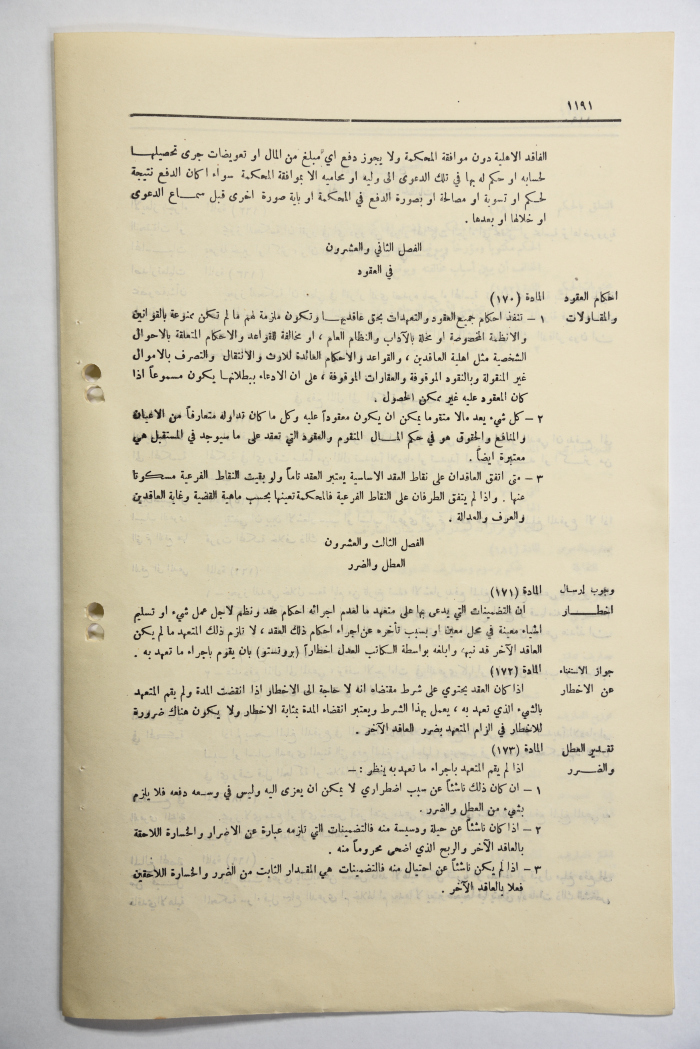 ١١٩١
الفاقد الاهلية دون موافقة المحكمة ولا يجوز دفع اي مبلغ من المال او تعويضات جرى تحصيلهـا
لحسابه او حكم له بها في تلك الدعوى الى وليه او محاميه الا بموافقة المحكمة سواء اكان الدفع نتيجة
لحكم او تسوية او مصالحة او بصورة الدفع في المحكمة او باية صورة اخرى قبل سماع الدعوى
او خلالها او بعدها .
الفصل الثاني والعشرون
في العقود
احكام العقود
والمقـاولات
المادة (١٧٠)
١ – تنفذ احكام جميع العقود والتعهدات بحق عاقديهـا وتكون ملزمة لهم ما لم تكن ممنوعة بالقوانين
والانظمة المخصوصة او مخلة بالآداب والنظام العام ، او مخالفة للقواعد والاحكام المتعلقة بالاحوال
الشخصية مثل اهلية العاقدين ، والقواعد والاحكام العائدة للارث والانتقال والتصرف بالاموال
غير المنقولة وبالنقود الموقوفة والعقارات الموقوفة ، على ان الادعاء ببطلانها يكون مسموعاً اذا
كان المعقود عليه غير ممكن الحصول .
٢ – كل شيء يعد مالا متقوما يمكن ان يكون معقوداً عليه وكل ما كان تداوله متعارفاً من الاعيان
والمنافع والحقوق هو في حكم المـال المتقوم والعقود التي تعقد على ما سيوجد في المستقبل هي
معتبرة ايضاً .
٣ – متى اتفق العاقدان على نقاط العقد الاساسية يعتبر العقد تاماً ولو بقيت النقاط الفرعية مسكوتا
عنها . واذا لم يتفق الطرفان على النقاط الفرعية فالمحكمة تعينها بحسب ماهية القضية وغاية العاقدين
والعرف والعدالة .
الفصل الثالث والعشرون
العطل والضرر
وجوب ارسال
اخطـــار
المادة (١٧١)
أن التضمينات التي يدعى بها على متعهد ما لعدم اجرائه احكام عقد ونظم لاجل عمل شيء او تسليم
اشياء معينة في محل معين او بسبب تأخره عن اجراء احكام ذلك العقد ، لا تلزم ذلك المتعهد ما لم يكن
العاقد الآخر قد نبهه وابلغه بواسطة الكاتب العدل اخطاراً (بروتستو) بان يقوم باجراء ما تعهد به .
جواز الاستغناء
عن الاخطار
المادة (١٧٢)
اذا كان العقد يحتوي على شرط مقتضاه انه لا حاجة الى الاخطار اذا انقضت المدة ولم يقم المتعهد
بالشيء الذي تعهد به ، يعمل بهذا الشرط ويعتبر انقضاء المدة بمثابة الاخطار ولا يكون هناك ضرورة
للاخطار في الزام المتعهد بضرر العاقد الآخر .
تقـدير العطل
والضـــرر
المادة (١٧٣)
اذا لم يقم المتعهد باجراء ما تعهد به ينظر : –
١ – ان كان ذلك ناشئاً عن سبب اضطراري لا يمكن ان يعزى اليه وليس في وسعه دفعه فلا يلزم
بشيء من العطل والضرر .
٢ – اذا كان ناشئاً عن حيلة ودسيسة منه فالتضمينات التي تلزمه عبارة عن الاضرار والخسارة اللاحقة
بالعاقد الآخر والربح الذي اضحى محروماً منه .
٣ – اذا لم يكن ناشئاً عن احتيال منه فالتضمينات هي المقدار الثابت من الضرر والخسارة اللاحقين
فعلا بالعاقد الآخر .